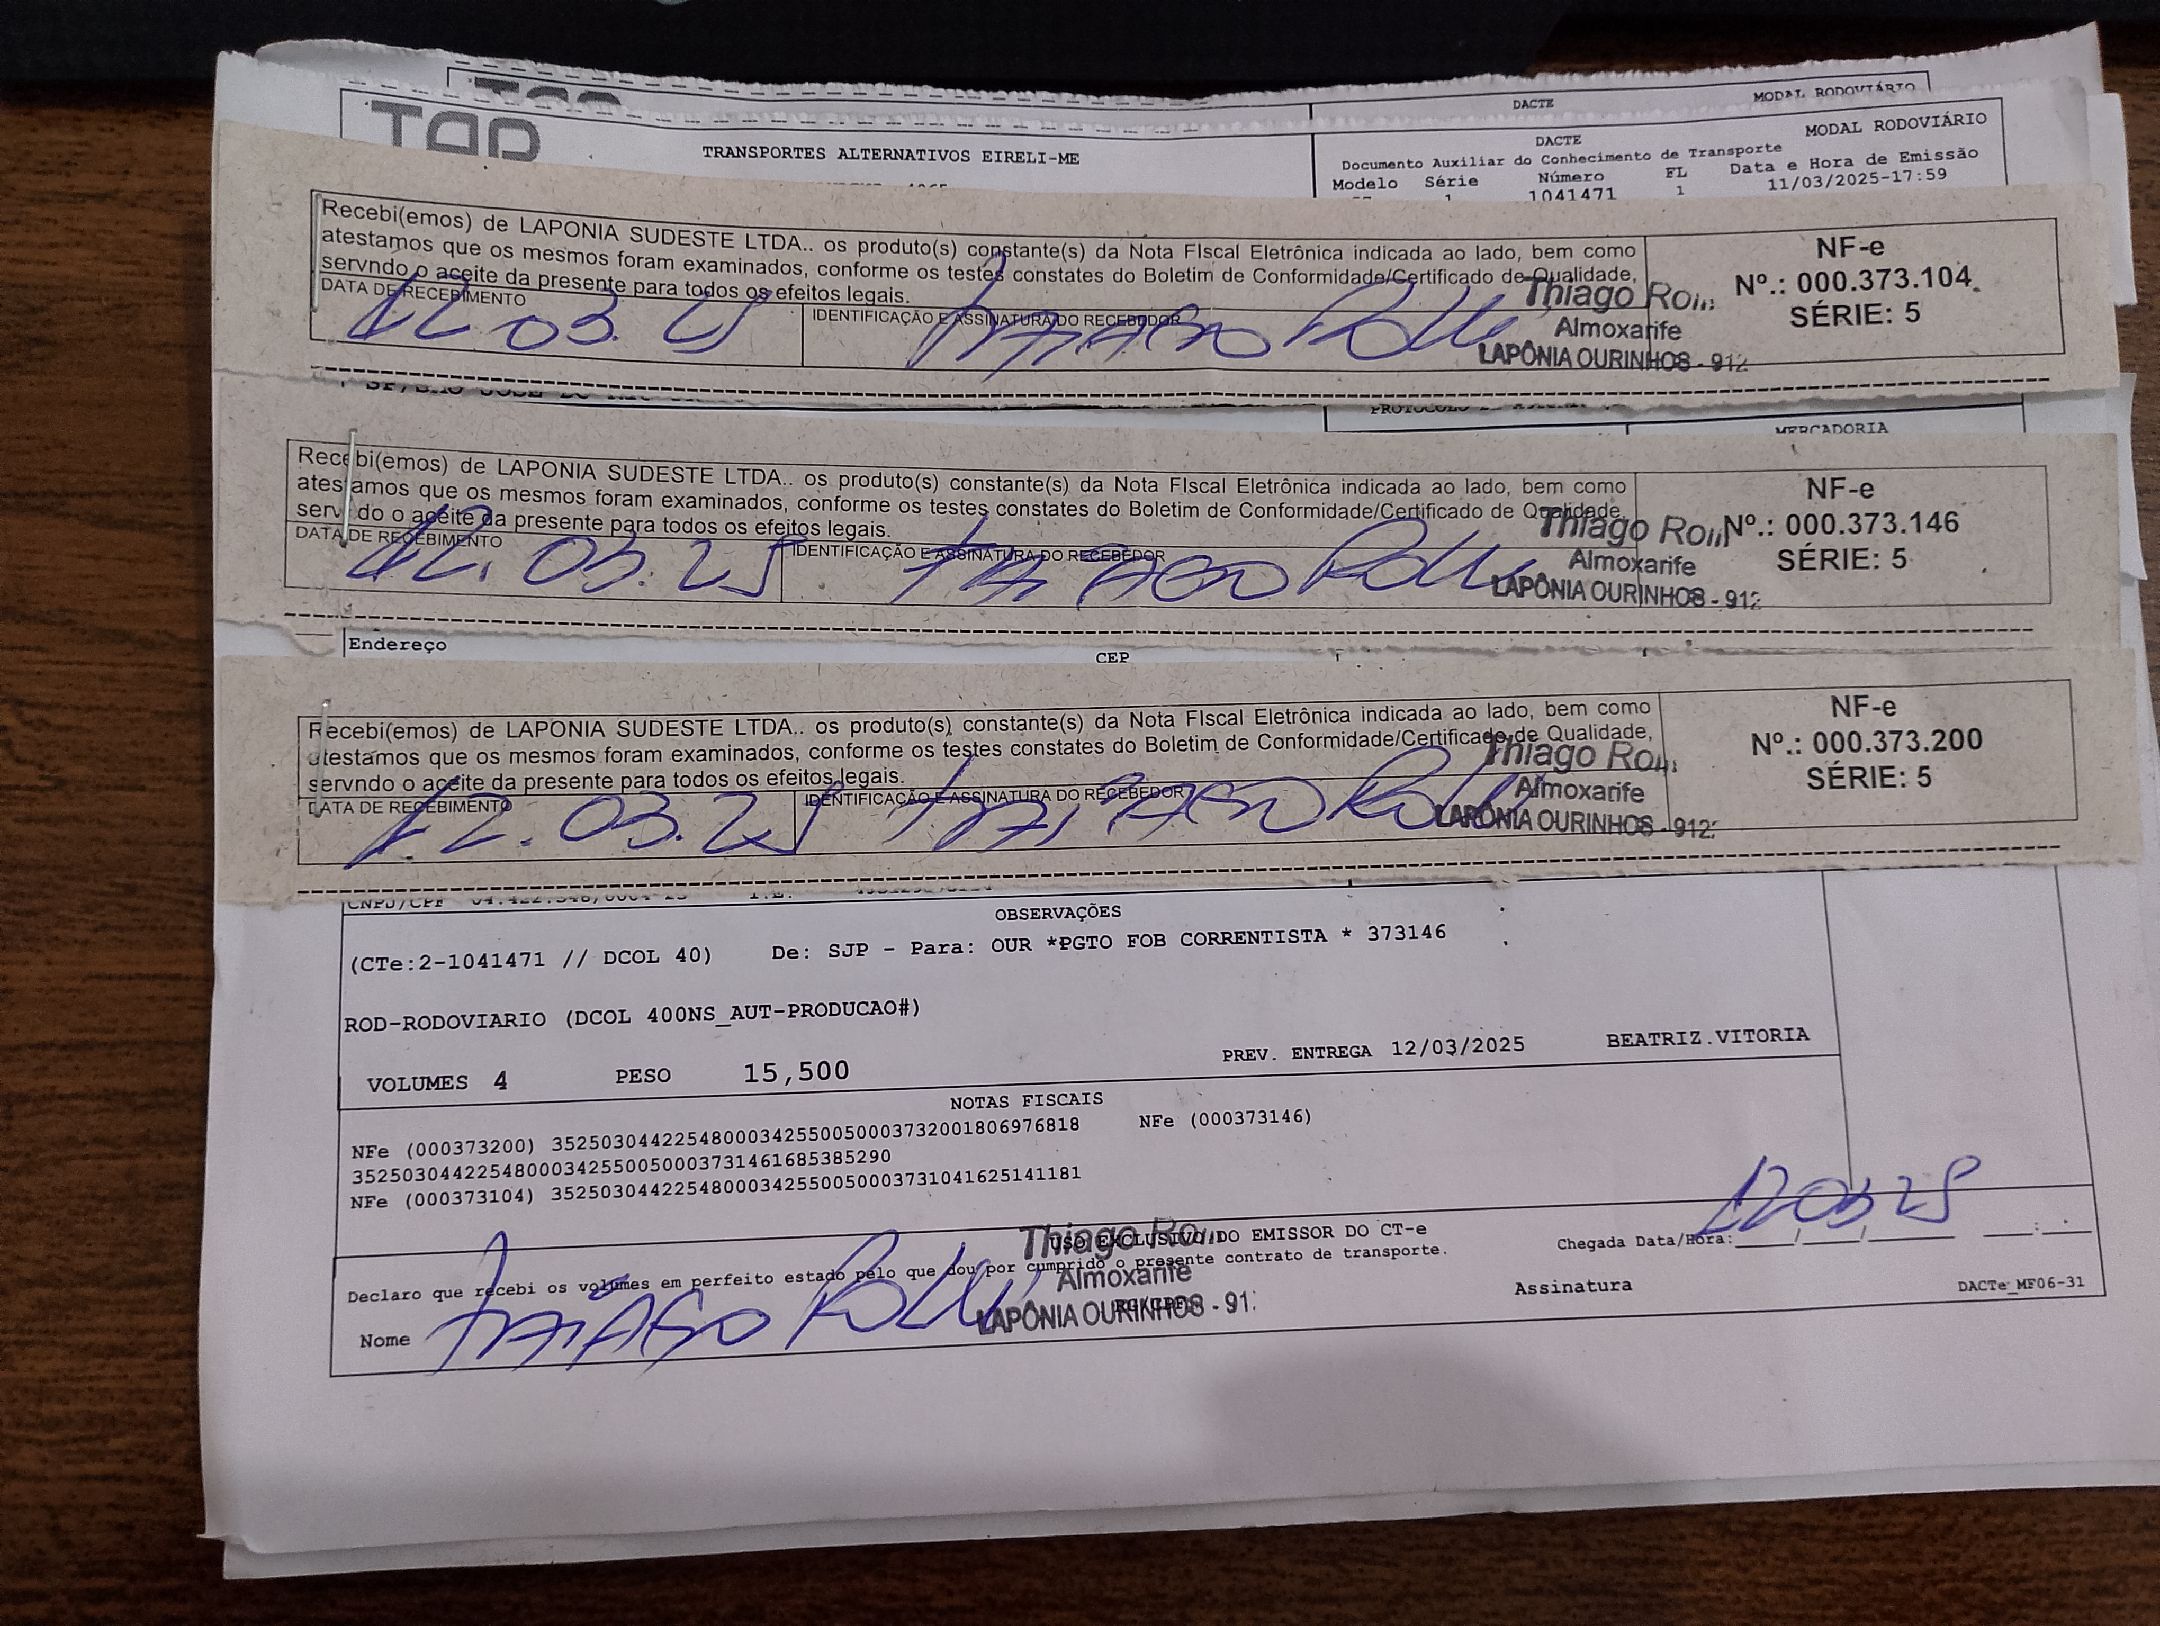 DACTE MODAL RODOVIÁRIO
TAP
TRANSPORTES ALTERNATIVOS EIRELI-ME
DACTE MODAL RODOVIÁRIO
Documento Auxiliar do Conhecimento de Transporte
Modelo Série Número FL Data e Hora de Emissão
1 1041471 1 11/03/2025-17:59
Recebi(emos) de LAPONIA SUDESTE LTDA.. os produto(s) constante(s) da Nota FIscal Eletrônica indicada ao lado, bem como
atestamos que os mesmos foram examinados, conforme os testes constates do Boletim de Conformidade/Certificado de Qualidade,
servndo o aceite da presente para todos os efeitos legais.
DATA DE RECEBIMENTO
12 03. 25
IDENTIFICAÇÃO E ASSINATURA DO RECEBEDOR
Thiago
Almoxarife
LAPÔNIA OURINHOS - 912
NF-e
Nº.: 000.373.104
SÉRIE: 5
MERCADORIA
Recebi(emos) de LAPONIA SUDESTE LTDA.. os produto(s) constante(s) da Nota FIscal Eletrônica indicada ao lado, bem como
atestamos que os mesmos foram examinados, conforme os testes constates do Boletim de Conformidade/Certificado de Qualidade,
servndo o aceite da presente para todos os efeitos legais.
DATA DE RECEBIMENTO
12. 03. 25
IDENTIFICAÇÃO E ASSINATURA DO RECEBEDOR
Thiago
Almoxarife
LAPÔNIA OURINHOS - 912
NF-e
Nº.: 000.373.146
SÉRIE: 5
Endereço
CEP
Recebi(emos) de LAPONIA SUDESTE LTDA.. os produto(s) constante(s) da Nota FIscal Eletrônica indicada ao lado, bem como
atestamos que os mesmos foram examinados, conforme os testes constates do Boletim de Conformidade/Certificado de Qualidade,
servndo o aceite da presente para todos os efeitos legais.
DATA DE RECEBIMENTO
12. 03. 25
IDENTIFICAÇÃO E ASSINATURA DO RECEBEDOR
Thiago
Almoxarife
LAPÔNIA OURINHOS - 912
NF-e
Nº.: 000.373.200
SÉRIE: 5
CNPJ/CPF I.E.
OBSERVAÇÕES
(CTe:2-1041471 // DCOL 40) De: SJP - Para: OUR *PGTO FOB CORRENTISTA * 373146
ROD-RODOVIARIO (DCOL 400NS_AUT-PRODUCAO#)
VOLUMES 4 PESO 15,500 PREV. ENTREGA 12/03/2025 BEATRIZ.VITORIA
NOTAS FISCAIS
NFe (000373200) 35250304422548000342550050003732001806976818 NFe (000373146)
35250304422548000342550050003731461685385290
NFe (000373104) 35250304422548000342550050003731041625141181
USO EXCLUSIVO DO EMISSOR DO CT-e
Declaro que recebi os volumes em perfeito estado pelo que dou por cumprido o presente contrato de transporte.
Chegada Data/Hora: 12 03 25
Thiago
Almoxarife
LAPÔNIA OURINHOS - 91
Nome Thiago
RG/CPF
Assinatura
DACTe_MF06-31